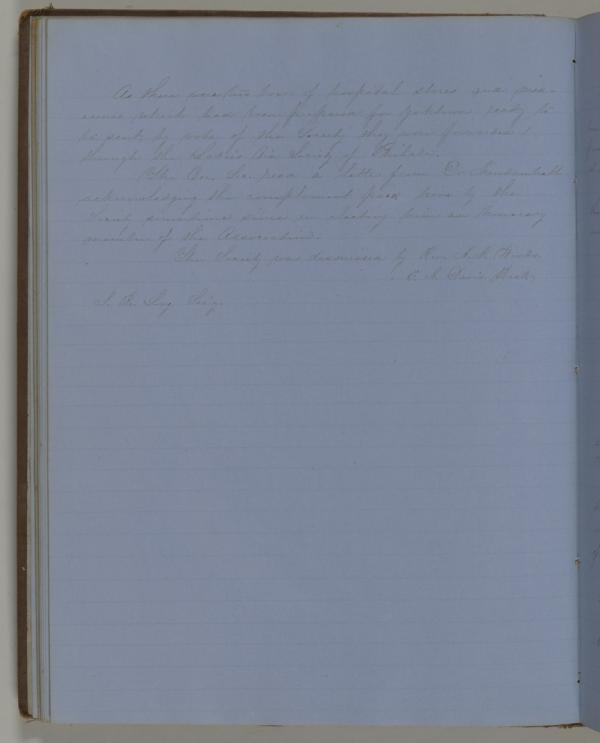 As there were two boxes of hospital stores and
which had been prepared for Yorktown ready to
be sent, by vote of the Society they were forwarded
through the Ladies Aid Society of Philada.
The Cor. Sec. read a letter from Dr. Mendenhall
acknowledging the compliment paid him by the
Society sometime since in electing him an Honorary
member of the Association.
The Society was dismissed by Rev.